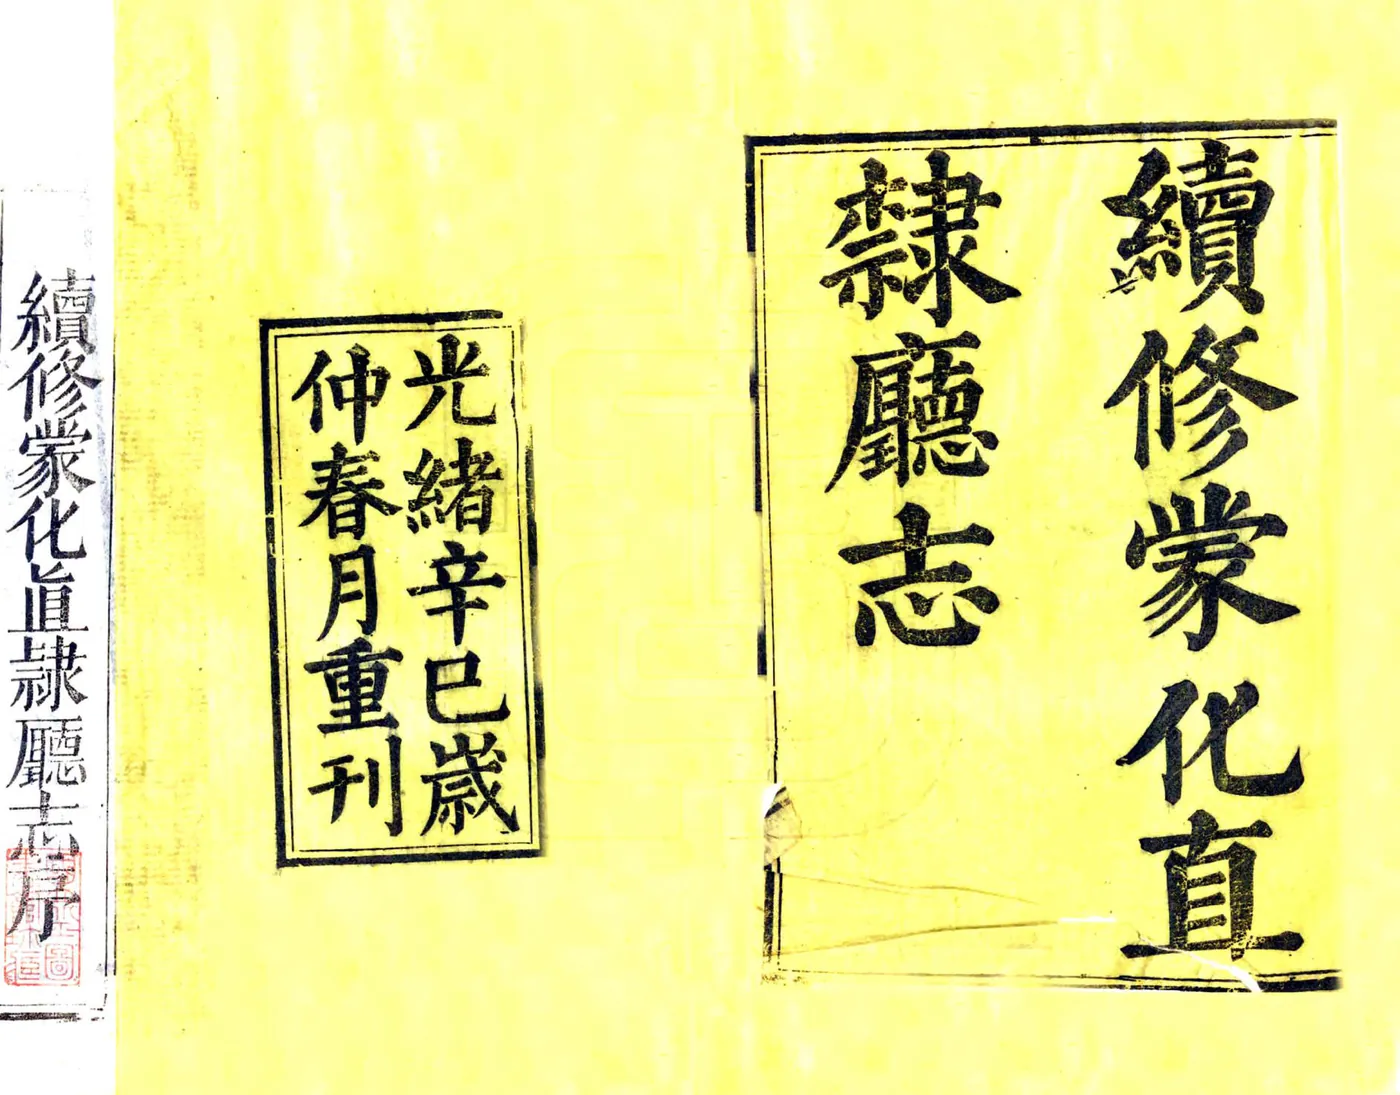 續修蒙化直
隸廳志
光緒辛巳歲
仲春月重刊
續修蒙化直隸廳志序